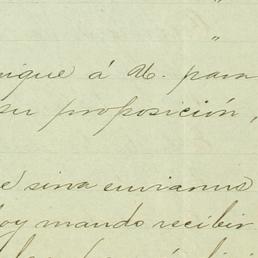 "
"
nique á U. para
su proposición,
e sirva enviarnos
hoy mando recibir